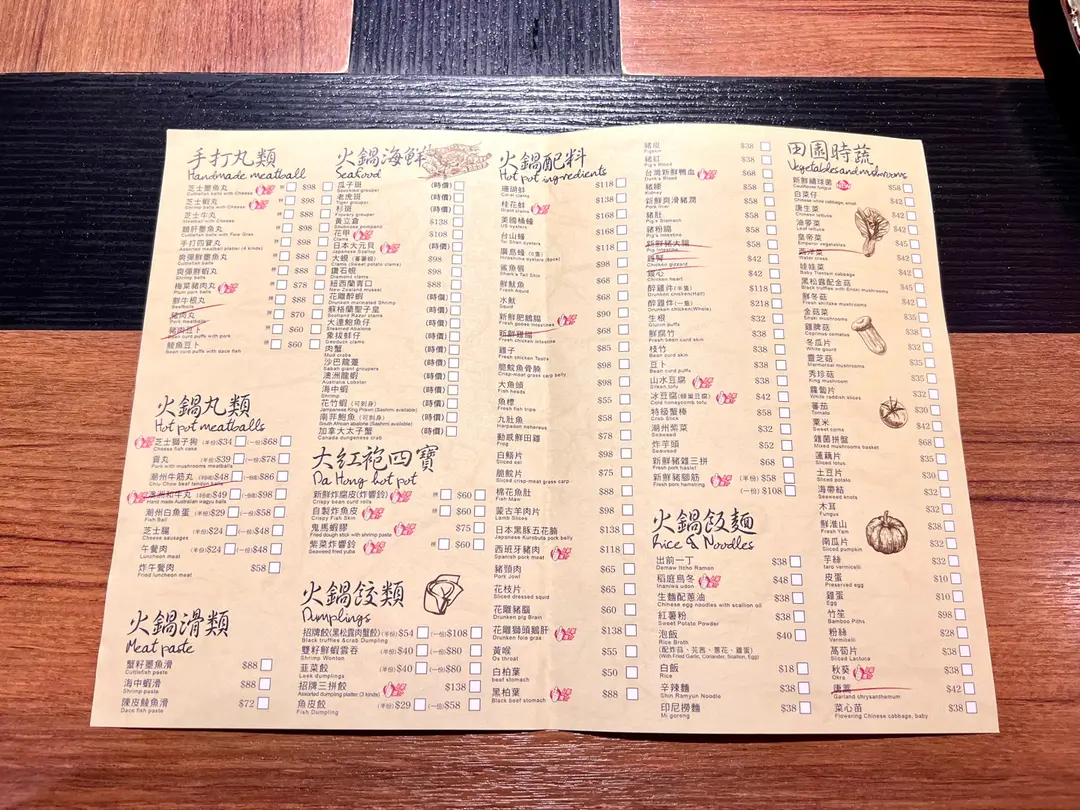 手打丸類
Handmade meatball
芝士墨魚丸 $98
Cuttlefish balls with Cheese
芝士蝦丸 $98
Shrimp balls with Cheese
芝士牛丸 $88
Meatball with Cheese
鵝肝墨魚丸 $98
Cuttlefish balls with Foie Gras
手打四寶丸 $98
Assorted meatball platter (4 kinds)
爽彈鮮墨魚丸 $88
Cuttlefish balls
爽彈鮮蝦丸 $88
Shrimp balls
梅菜豬肉丸 $78
Plum pork balls
鮮牛根丸 $88
Beefballs
豬肉丸 $70
Pork meatballs
豬肉豆卜 $60
Bean curd puffs with pork
鯪魚豆卜 $60
Bean curd puffs with dace fish
火鍋丸類
Hot pot meatballs
芝士獅子狗 (半份)$34 (一份)$68
Cheese fish cake
貢丸 (半份)$39 (一份)$78
Pork with mushrooms meatballs
潮州牛筋丸 (半份)$48 (一份)$86
Chiu Chow beef tendon balls
澳洲和牛丸 (半份)$49 (一份)$98
Hand made Australian wagyu balls
潮州白魚蛋 (半份)$29 (一份)$58
Fish Ball
芝士腸 (半份)$24 (一份)$48
Cheese sausages
午餐肉 (半份)$24 (一份)$48
Luncheon meat
炸午餐肉 $58
Fried luncheon meat
火鍋滑類
Meat paste
蟹籽墨魚滑 $88
Cuttlefish paste
海中蝦滑 $88
Shrimp paste
陳皮鯪魚滑 $72
Dace fish paste
火鍋海鮮
Seafood
瓜子斑 (時價)
老虎斑 (時價)
Tiger grouper
杉斑 (時價)
黃立倉 $138
花甲 $108
Clams
日本大元貝 (時價)
Japanese Scallop
大蜆 $98
鑽石蜆 $98
Diamond clams
紐西蘭青口 $88
New Zealand mussel
花雕醉蝦 (時價)
Drunken marinated Shrimp
蘇格蘭聖子皇 (時價)
Scotland Razor clams
大連鮑魚仔 (時價)
Steamed Abalone
象拔蚌仔 (時價)
Geoduck clams
肉蟹 (時價)
Mud crabs
沙巴龍躉 (時價)
Sabah giant groupers
澳洲龍蝦 (時價)
Australia Lobster
海中蝦 (時價)
Shrimp
花竹蝦 (可刺身) (時價)
Jampanese King Prawn (Sashimi available)
南非鮑魚 (可刺身) (時價)
South African abalone (Sashimi available)
加拿大太子蟹 (時價)
Canada dungeness crab
大紅袍四寶
Da Hong hot pot
新鮮炸腐皮(炸響鈴) $60
Crispy bean curd rolls
自製炸魚皮 $60
Crispy Fish Skin
鬼馬蝦膠 $75
Fried dough stick with shrimp paste
紫菜炸響鈴 $60
Seaweed fried yuba
火鍋餃類
Dumplings
招牌餃(黑松露肉蟹餃) (半份)$54 (一份)$108
Black truffles &crab Dumpling
雙籽鮮蝦雲吞 (半份)$40 (一份)$80
Shrimp Wonton
韮菜餃 (半份)$40 (一份)$80
Leek dumplings
招牌三拼餃 $138
Assorted dumpling platter (3 kinds)
魚皮餃 (半份)$29 (一份)$58
Fish Dumpling
火鍋配料
Hot pot ingredients
珊瑚蚌 $118
Coral clams
桂花蚌 $168
Giant clams
美國桶蠔 $138
US oysters
台山蠔 $168
Tai Shan oysters
廣島蠔 (8隻) $118
Hiroshima oysters (8pcs)
鯊魚唇 $98
Shark's Tail Skin
鮮魷魚 $98
Fresh Squid
水魷 $68
Squid
新鮮肥鵝腸 $90
Fresh goose intestines
新鮮雞腸 $68
Fresh chicken intestine
雞子 $85
Fresh chicken Testis
脆鯇魚骨腩 $98
Crisp-meat grass carp belly
大魚頭 $68
Fish heads
魚標 $55
Fresh fish trips
九肚魚 $58
Harpadon nehereus
動感鮮田雞 $98
Frog
白鱔片 $98
Sliced eel
脆鯇片 $98
Sliced crisp-meat grass carp
棉花魚肚 $88
Fish Maw
蒙古羊肉片 $98
Lamb Slices
日本黑豚五花腩 $138
Japanese Kurobuta pork belly
西班牙豬肉 $118
Spanish pork meat
豬頸肉 $65
Pork Jowl
花枝片 $65
Sliced dressed squid
花雕豬腦 $60
Drunken pig Brain
花雕獅頭鵝肝 $138
Drunken foie gras
黃喉 $55
Ox throat
白柏葉 $50
beef stomach
黑柏葉 $88
Black beef stomach
豬皮 $38
Pigskin
豬紅 $38
Pig's Blood
台灣新鮮鴨血 $68
Duck's Blood
豬腰 $58
Kidney
新鮮爽滑豬潤 $58
Pork liver
豬肚 $58
Pig's Stomach
豬粉腸 $58
Pig intestine
新鮮豬大腸 $58
Pig Intestine
雞腎 $42
Chicken gizzard
雞心 $42
Chicken heart
醉雞件 (半隻) $118
Drunken chicken(Half)
醉雞件 (一隻) $218
Drunken chicken(Whole)
生根 $32
Gluten puffs
鮮腐竹 $38
Fresh bean curd skin
枝竹 $38
Bean curd skin
豆卜 $38
Bean curd puffs
山水豆腐 $38
Silken tofu
冰豆腐(蜂巢豆腐) $42
Cold honeycomb tofu
特級蟹棒 $58
Crab Stick
潮州紫菜 $32
Seaweed
炸芋頭 $52
新鮮豬雜三拼 $68
Fresh pork haslet
新鮮豬腳筋 (半份) $58
Fresh pork hamstring
(一份) $108
火鍋飯麵
Rice & Noodles
出前一丁 $38
Demaw Itcho Ramon
稻庭烏冬 $48
Inaniwa udon
生麵配蔥油 $38
Chinese egg noodles with scallion oil
紅薯粉 $38
Sweet Potato Powder
泡飯 $40
Rice Broth
(配炸蒜、芫茜、蔥花、雞蛋)
(With Fried Garlic, Coriander, Scallion, Egg)
白飯 $18
Rice
辛辣麵 $38
Shin Ramyun Noodle
印尼撈麵 $38
Mi goreng
田園時蔬
Vegetables and mushrooms
新鮮繡球菌 $58
Cauliflower fungus
白菜仔 $42
Chinese white cabbage, small
唐生菜 $42
Chinese lettuce
油麥菜 $42
Leaf lettuce
皇帝菜 $45
Emperor vegetables
西洋菜 $42
Water cress
娃娃菜 $42
Baby Tientsin cabbage
黑松露配金菇 $42
Black truffles with Enoki mushrooms
鮮冬菇 $42
Fresh shiitake mushrooms
金菇菜 $35
Enoki mushrooms
雞脾菇 $38
Coprinus comatus
冬瓜片 $32
White gourd
靈芝菇 $35
Marmoreal mushrooms
秀珍菇 $35
King mushroom
蘿蔔片 $32
White raddish slices
蕃茄 $30
Tomato
粟米 $42
Sweet corns
雜菌拼盤 $68
Mixed mushrooms basket
蓮藕片 $35
Sliced lotus
土豆片 $30
Sliced potato
海帶結 $32
Seaweed knots
木耳 $32
Fungus
鮮淮山 $38
Fresh Yam
南瓜片 $32
Sliced pumpkin
芋絲 $32
taro vermicelli
皮蛋 $10
Preserved egg
雞蛋 $10
Egg
竹笙 $98
Bamboo Piths
粉絲 $28
Vermicelli
萵筍片 $38
Sliced Lactuca
秋葵 $38
Okra
唐蒿 $42
Garland chrysanthemum
菜心苗 $38
Flowering Chinese cabbage, baby